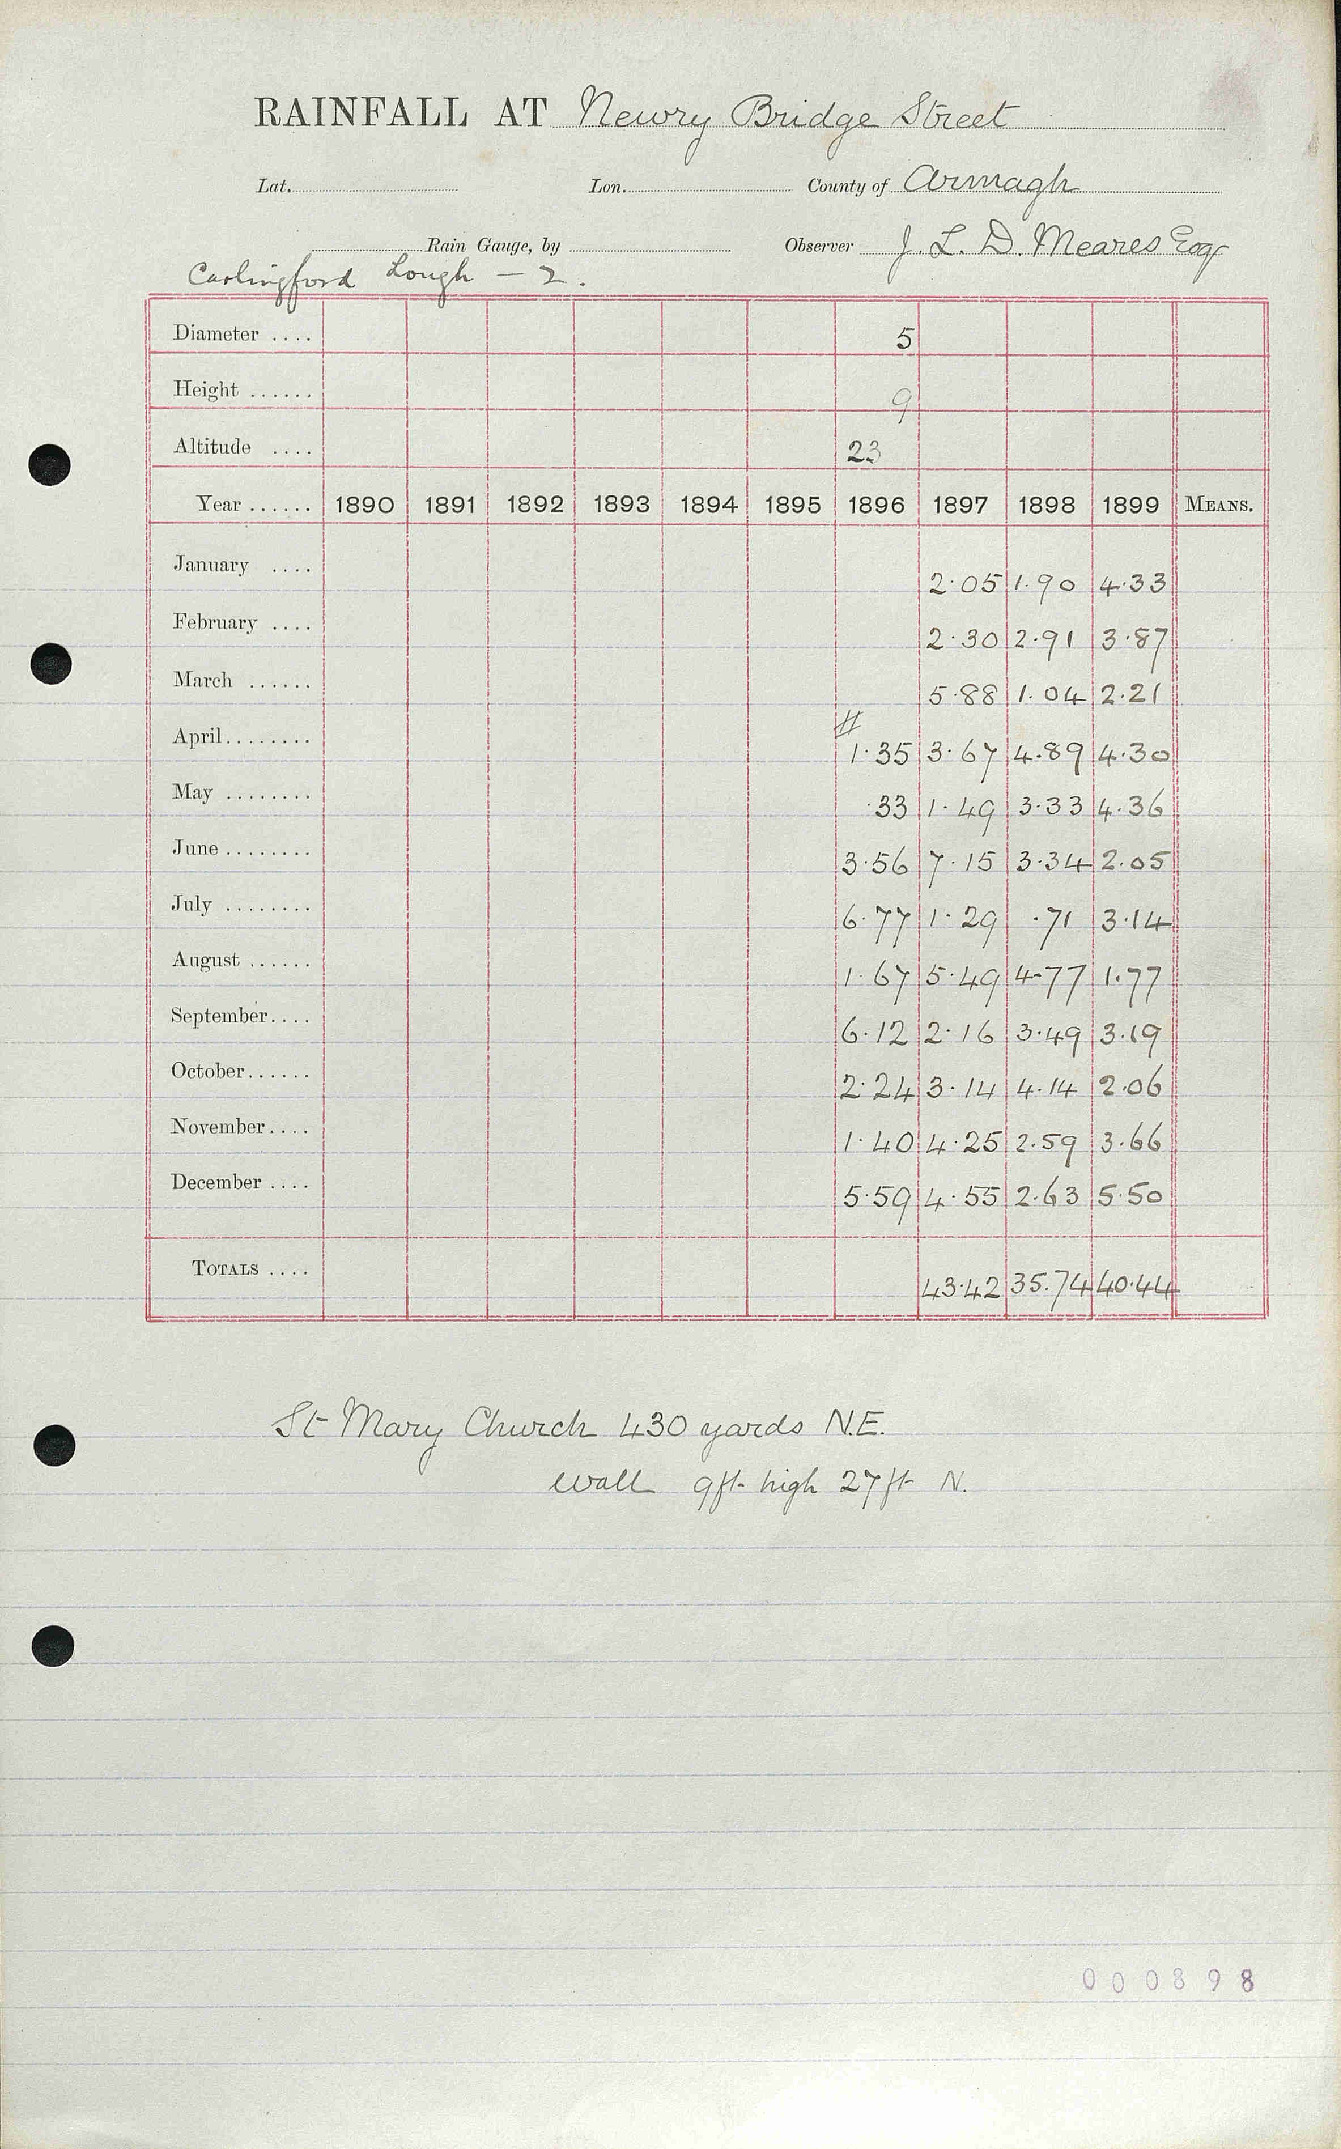 RAINFALL AT Newry Bridge Street
Lat. Lon. County of Armagh
Rain Gauge, by Observer J. L. D. Meares Esqr
Carlingford Lough – 2.
Diameter .... 5
Height ...... 9
Altitude .... 23
Year ...... 1890 1891 1892 1893 1894 1895 1896 1897 1898 1899 MEANS.
January .... 2.05 1.90 4.33
February .... 2.30 2.91 3.87
March ...... 5.88 1.04 2.21
April........ # 1.35 3.67 4.89 4.30
May ........ .33 1.49 3.33 4.36
June ........ 3.56 7.15 3.34 2.05
July ........ 6.77 1.29 .71 3.14
August ...... 1.67 5.49 4.77 1.77
September.... 6.12 2.16 3.49 3.19
October...... 2.24 3.14 4.14 2.06
November.... 1.40 4.25 2.59 3.66
December .... 5.59 4.55 2.63 5.50
TOTALS .... 43.42 35.74 40.44
St Mary Church 430 yards N.E.
Wall 9ft high 27ft N.
000898